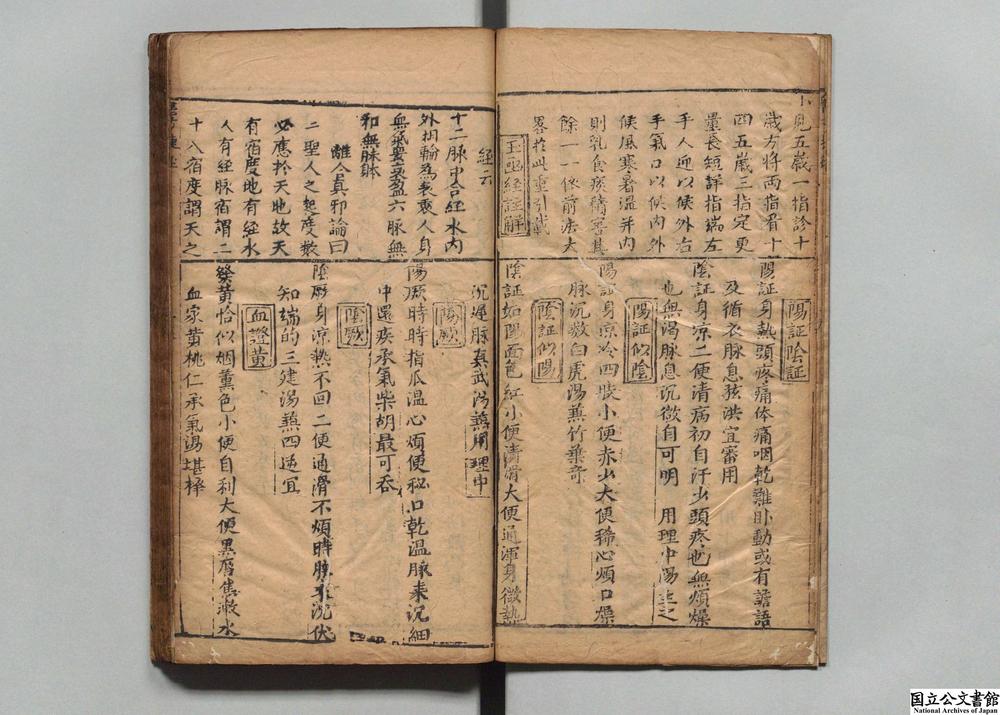 小兒五歲一指診十
歲方將兩指看十
四五歲三指定更
量長短詳指端左
手人迎以候外右
手氣口以候內外
候風寒暑溫并內
則乳食痰積審其
餘一一依前法大
畧於此重引載
玉函經註解
陽証陰証
陽証身熱頭疼痛体痛咽乾難臥動或有譫語
及循衣脉息弦洪宜審用
陰証身凉二便清病初自汗少頭疼也無煩燥
也無渴脉息沉微自可明 用理中湯主之
陽証似陰
陽証身凉冷四肢小便赤少大便稀心煩口燥
脉沉数白虎湯兼竹葉奇
陰証似陽
陰証如陽面色紅小便清滑大便通渾身微熱
經云
十二脉中合經水內
外相輪為表裏人身
無氣盈六脉無
和無脉躰
離合真邪論曰
二聖人之起度数
必應於天地故天
有宿度地有經水
人有經脉宿謂二
十八宿度謂天之
沉遲脉真武湯兼用理中
陽厥
陽厥時時指瓜溫心煩便秘口乾溫脉来沉細
中還疾承氣柴胡最可吞
陰厥
陰厥身凉热不回二便通滑不煩脉沉伏
知端的三建湯兼四逆宜
血證黃
發黃恰似烟薰色小便自利大便黑唇焦漱水
血家黃桃仁承氣湯堪擇
国立公文書館
National Archives of Japan